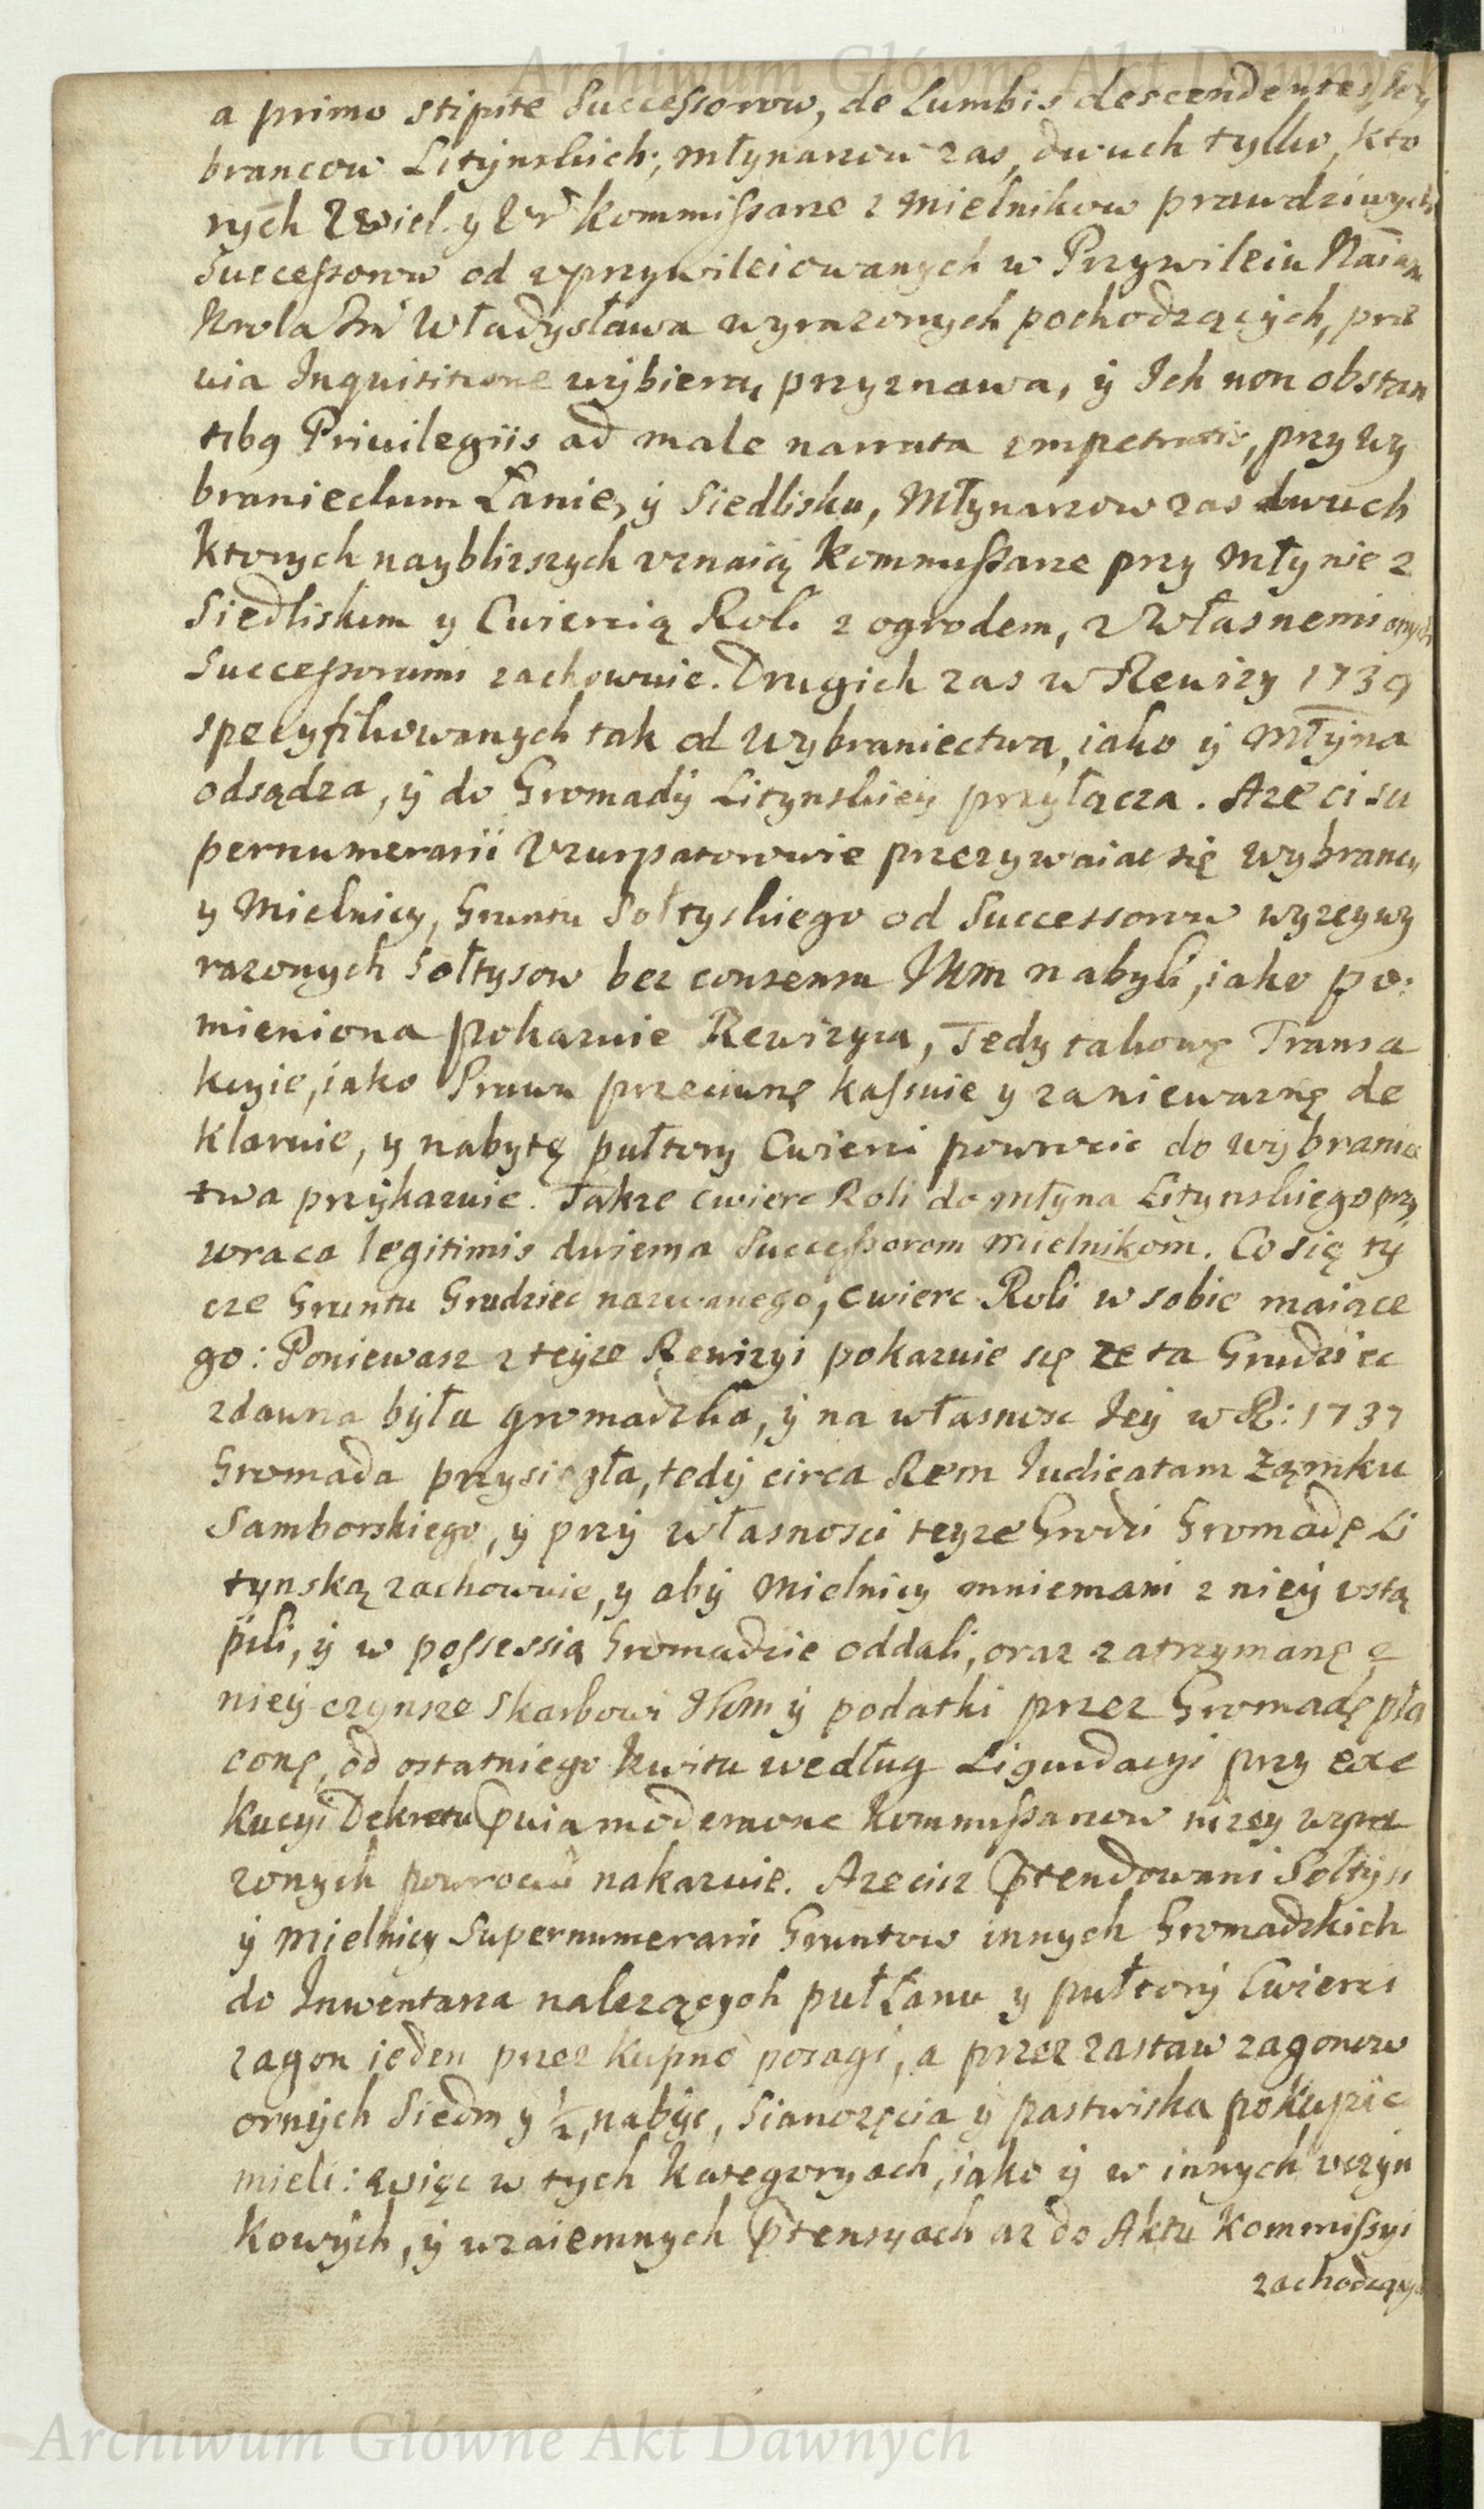 Archiwum Główne Akt Dawnych
a primo stipite Successorow, de Lumbis descendentes,
brancow Litynskich; młynarzow zas, dwuch tylko, kto
rych Wiel. y Ur. kommissarze z mielnikow prawdziwych
Successorow od uprzywileiowanych w Przywileiu Naiaś
Krola Władysława wyrazonych pochodzących, præ
via Inquisitione wybierą, przyznawa, ÿ Ich non obstan
tibq Privilegiis ad male narrata impetratis, przy Wy
branieckim Łanie, ÿ Siedlisku, Młynarzow zas dwuch
ktorych nayblizszych uznaią Kommissarze przy Młynie z
Siedliskim y Cwiercią Roli z ogrodem, z Własnemi onych
Successorami zachowuie. Drugich zas w Rewizy 1739
specyfikowanych tak od Wybraniectwa, iako ÿ Młÿna
odsądza, ÿ do Gromadÿ Litynskieÿ przyłącza. Aze ci su
pernumerarii Uzurpatorowie przezywaiac się wybrancy
y Mielnicy, Gruntu Sołtyskiego od Successorow wyzey wy
razonych Sołtysow bez consensu JKM nabyli, iako po:
mieniona pokazuie Rewizyia, Tedy takowę Transa
kcyie, iako Prawu przeciwnę kassuie y zaniewaznę de
klaruie, y nabytę pułtory Cwierci powrocic do wybranie
twa przÿkazuie. Takze cwierc Roli do młyna Litynskiego przy
wraca legitimis dwiema Successorom mielnikom. Co się ty
cze Gruntu Grudziec nazwanego, cwierc Roli w sobie maiące
go: Poniewasz z teÿze Rewizyi pokazuie się ze ta Grudziec
zdawna była gromadzka, ÿ na własnosc Jeÿ w R: 1737
Gromada przysięgła, tedÿ circa Rem Iudicatam Ząmku
Samborskiego, ÿ przÿ własnosci teyze Grodzi Gromadę Li
tynską zachowuie, y abÿ Mielnicy mniemani z nieÿ ustą
pili, ÿ w possessią Gromadzie oddali, oraz zatrzymanę z
nieÿ czynsze Skarbowi JKM ÿ podatki przez Gromadę pła
conę, od ostatniego kwitu według Liquidacyi przy exe
kucyi Dekretu Pvia moderaone Kommissarzow nizey wyra
zonych powrocili nakazuie. Azecisz Ptendowani Sołtysi
ÿ Mielnicy Supernumerarii Gruntow innych Gromadzkich
do Inwentarza nalezących puł Łanu y pułtorÿ Cwierci
zagon ieden przez kupno posagi, a przez zastaw zagonow
ornÿch Siedm y ½, nabÿc, Sianozęcia ÿ pastwiska pokupic
mieli: więc w tych kategoryach, iako ÿ w innych uczyn
kowÿch, ÿ wzaiemnych Ptensyach az do Aktu Kommissyi
zachodzących
Archiwum Główne Akt Dawnych